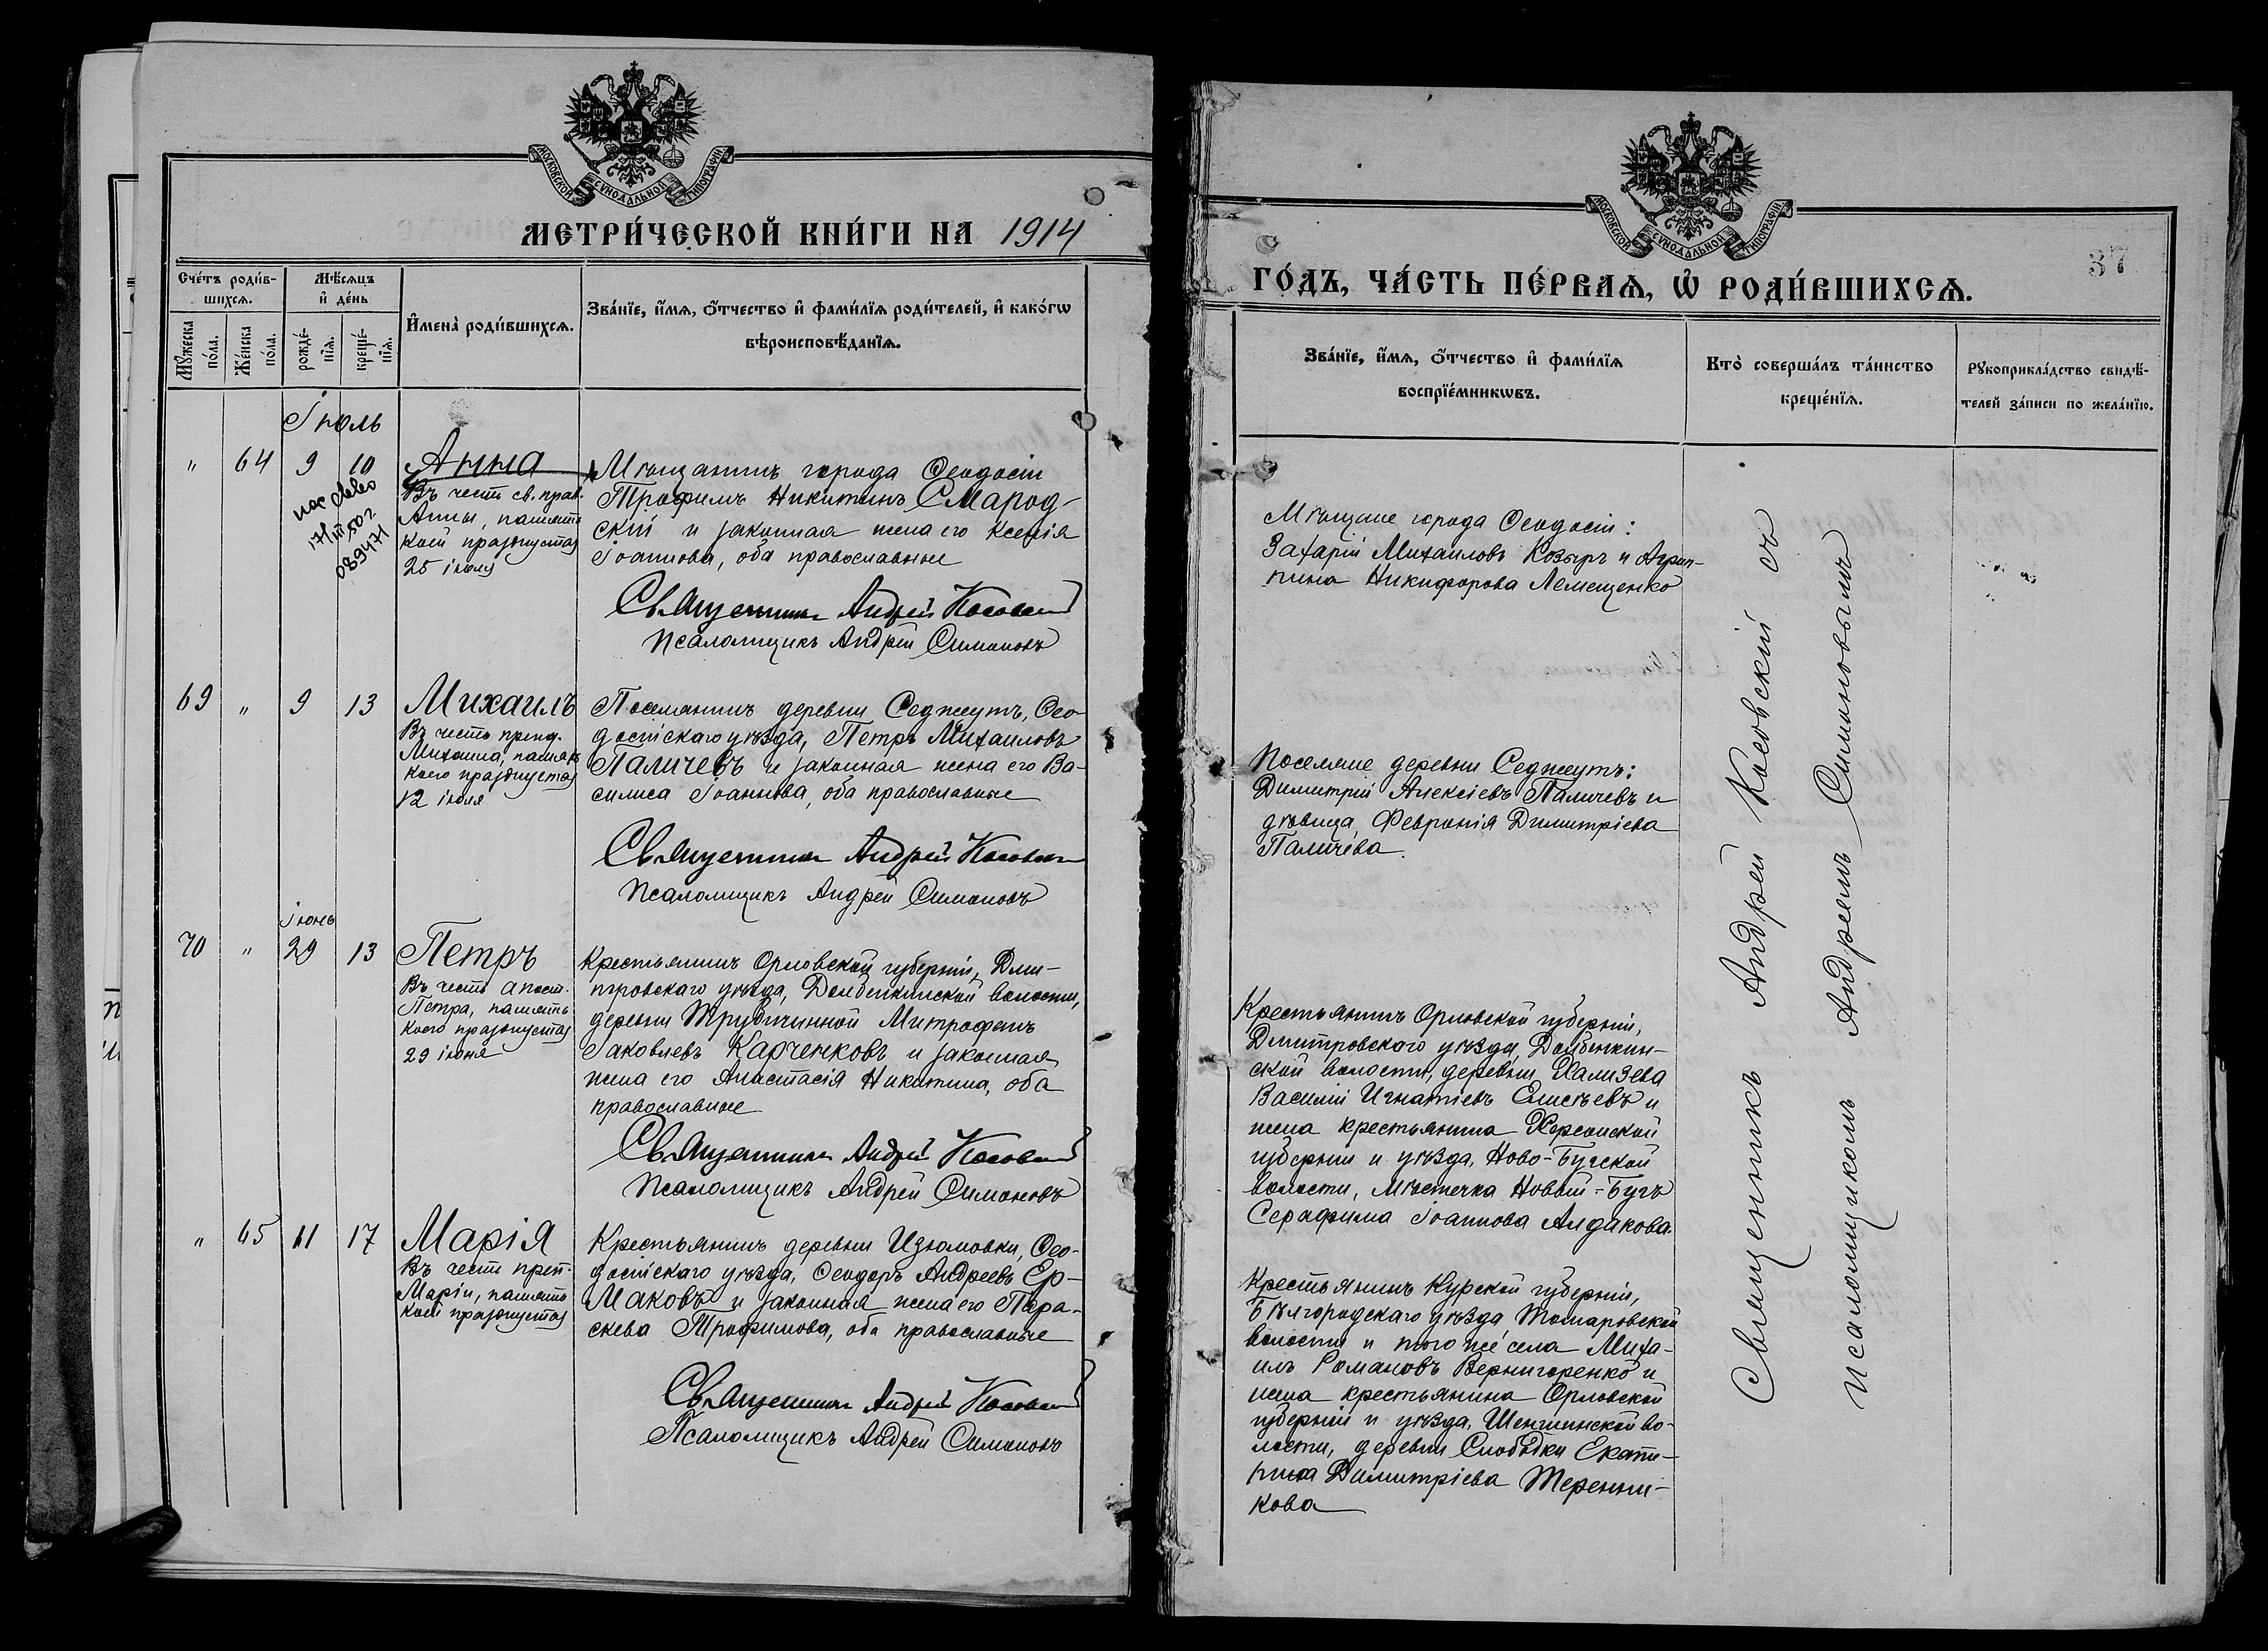 МОСКОВСКОЙ СѴНОДАЛЬНОЙ ТИПОГРАФІИ
МЕТРИ́ЧЕСКОЙ КНИ́ГИ НА 1914
Сче́тъ роди́в-
шихся.
Мѣ́сяцъ
и҆ де́нь
Мꙋ́жеска
по́ла.
Же́нска
по́ла.
рожде́-
нїѧ.
креще́-
нїѧ.
И҆мена̀ роди́вшихсѧ.
Зва́нїе, и҆́мѧ, ѻ҆́тчество и҆ фами́лїѧ роди́телей, и҆ како́гѡ
вѣроисповѣ́данїѧ.
Іюль
" 64 9 10 Анна
Въ честь св. прав.
Анны, память
коей празднуется
25 іюля
17/III 50 г.
089471
Мѣщанинъ города Ѳеодосіи
Трофимъ Никитинъ Смарод-
скій и законная жена его Ксенія
Іоаннова, оба православные
Священникъ Андрей Косовскій
Псаломщикъ Андрей Симоновъ
69 " 9 13 Михаилъ
Въ честь преп.
Михаила, память
коего празднуется
12 іюля
Поселянинъ деревни Седжеутъ, Ѳео-
досійскаго уѣзда, Петръ Михаиловъ
Паличевъ и законная жена его Ва-
силиса Іоаннова, оба православные
Священникъ Андрей Косовскій
Псаломщикъ Андрей Симоновъ
Іюнь
70 " 29 13 Петръ
Въ честь апост.
Петра, память
коего празднуется
29 іюня
Крестьянинъ Орловской губерніи, Дми-
тровскаго уѣзда, Долбенкинской волости,
деревни Трубичинной Митрофанъ
Іаковлевъ Карченковъ и законная
жена его Анастасія Никитина, оба
православные
Священникъ Андрей Косовскій
Псаломщикъ Андрей Симоновъ
" 65 11 17 Марія
Въ честь преп.
Маріи, память
коей празднуется
Крестьянинъ деревни Изюмовки, Ѳео-
досійскаго уѣзда, Ѳеодоръ Андреевъ Ер-
маковъ и законная жена его Пара-
скева Трофимова, оба православные
Священникъ Андрей Косовскій
Псаломщикъ Андрей Симоновъ
МОСКОВСКОЙ СѴНОДАЛЬНОЙ ТИПОГРАФІИ
37
ГО́ДЪ, ЧА́СТЬ ПЕ́РВАѦ, Ѽ РОДИ́ВШИХСѦ.
Зва́нїе, и҆́мѧ, ѻ҆́тчество и҆ фами́лїѧ
воспрїе́мникѡвъ.
Кто̀ соверша́лъ та́инство
креще́нїѧ.
Рꙋкоприкла́дство свидѣ́-
телей за́писи по жела́нїю.
Мѣщане города Ѳеодосіи:
Захарій Михаиловъ Козырь и Агрип-
пина Никифорова Лемещенко
Поселяне деревни Седжеутъ:
Димитрій Алексіевъ Паличевъ и
дѣвица, Февронія Димитріева
Паличева.
Крестьянинъ Орловской губерніи,
Дмитровскаго уѣзда, Долбенкин-
ской волости, деревни Хализева
Василій Игнатіевъ Елисѣевъ и
жена крестьянина Херсонской
губерніи и уѣзда, Ново-Бугской
волости, мѣстечка Новый-Бугъ
Серафима Іоаннова Алдакова.
Крестьянинъ Курской губерніи,
Бѣлгородскаго уѣзда Томаровской
волости и того же села Миха-
илъ Романовъ Вернигоренко и
жена крестьянина Орловской
губерніи и уѣзда, Шеншинской во-
лости, деревни Слободки Екате-
рина Димитріева Теренни-
кова
Священникъ Андрей Косовскій съ
псаломщикомъ Андреемъ Симоновымъ